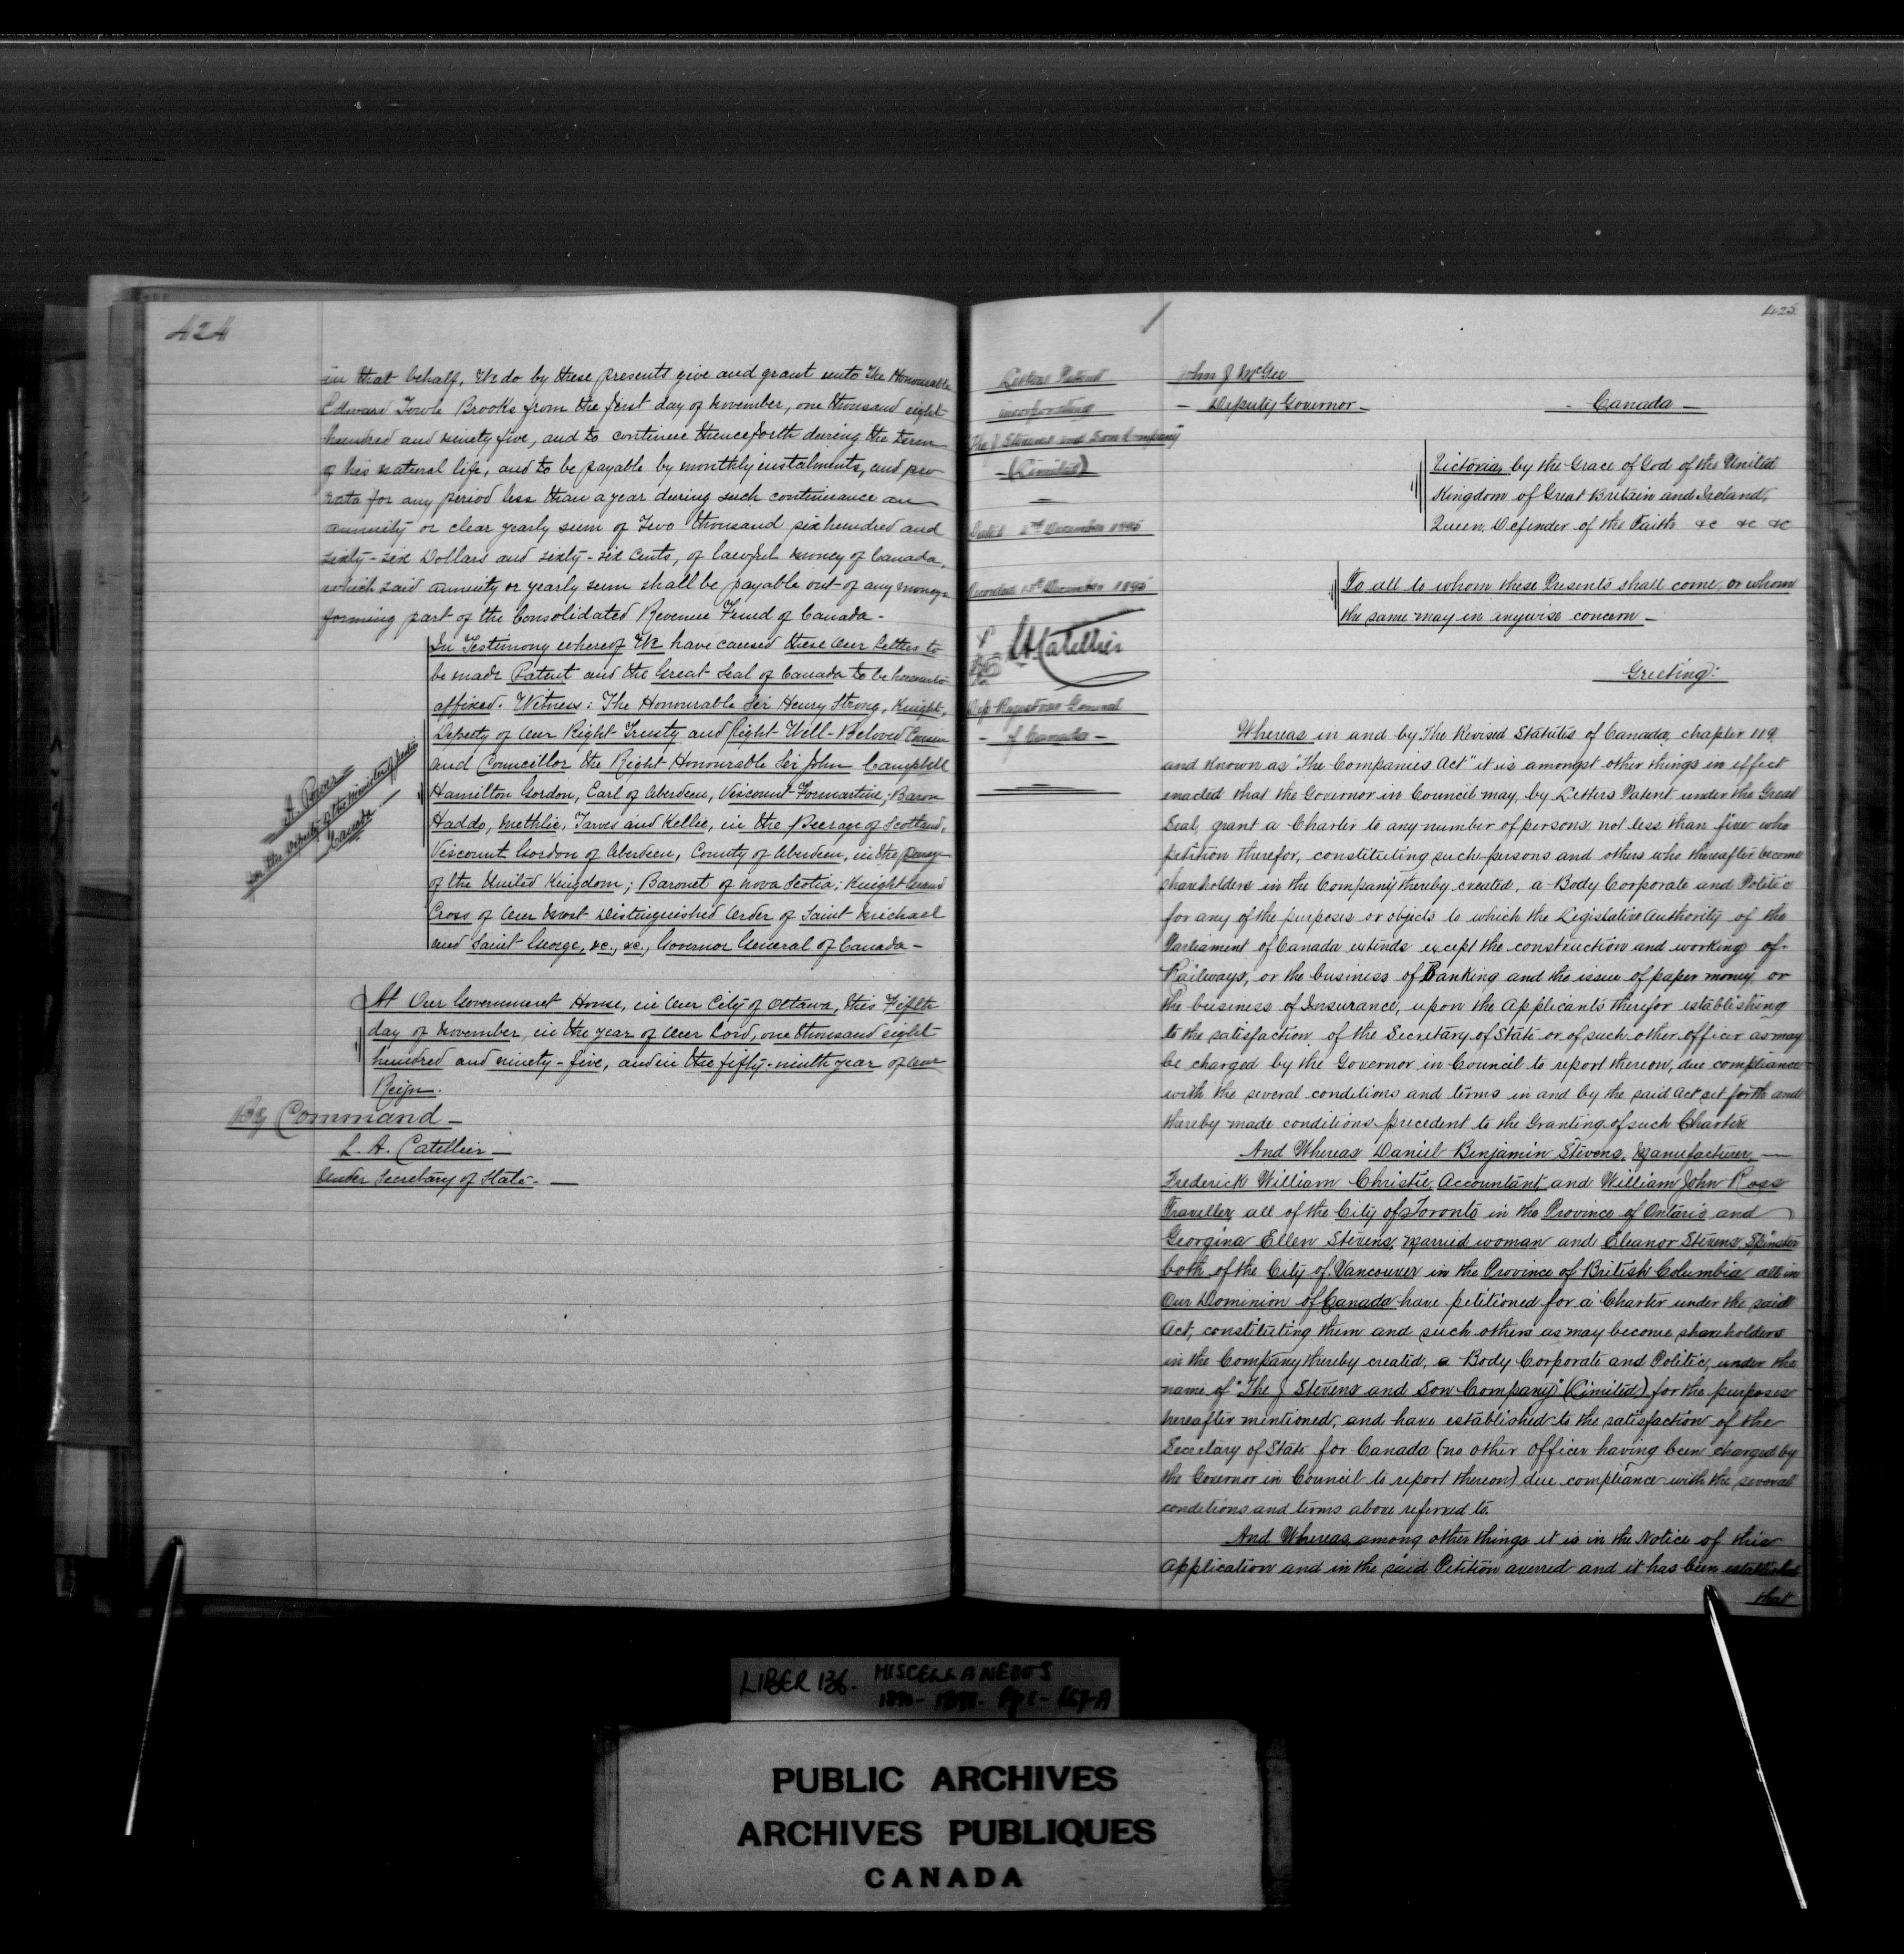 424
in that behalf, We do by these presents give and grant unto The Honourable
Edward Towle Brooks from the first day of November, one thousand eight
hundred and ninety five, and to continue thenceforth during the term
of his natural life, and to be payable by monthly instalments, and pro
rata for any period less than a year during such continuance an
annuity or clear yearly sum of Two thousand six hundred and
sixty-six Dollars and sixty-six Cents, of lawful money of Canada,
which said annuity or yearly sum shall be payable out of any moneys
forming part of the Consolidated Revenue Fund of Canada -
In Testimony whereof We have caused these Our Letters to
be made Patent and the Great Seal of Canada to be hereunto
affixed. Witness: The Honourable Sir Henry Strong, Knight,
Deputy of Our Right Trusty and Right Well-Beloved Cousin
and Councillor the Right Honourable Sir John Campbell
Hamilton Gordon, Earl of Aberdeen, Viscount Formartine, Baron
Haddo, Methlic, Tarves and Kellie, in the Peerage of Scotland,
Viscount Gordon of Aberdeen, County of Aberdeen, in the Peerage
of the United Kingdom; Baronet of Nova Scotia; Knight Grand
Cross of Our Most Distinguished Order of Saint Michael
and Saint George, &c., &c., Governor General of Canada -
A. Power
for the Deputy of the Minister of Justice
Canada
At Our Government House, in Our City of Ottawa, this Fifth
day of November, in the year of Our Lord, one thousand eight
hundred and ninety-five, and in the fifty-ninth year of Our
Reign.
By Command -
L. A. Catellier -
Under Secretary of State. -
425
Letters Patent
incorporating
The J Stevens and Son Company
(Limited)
Dated December 1895
Recorded December 1895
LACatellier
Dep Registrar General
of Canada -
John J McGee
- Deputy Governor -
- Canada -
Victoria, by the Grace of God of the United
Kingdom of Great Britain and Ireland,
Queen, Defender of the Faith &c &c &c
To all to whom these Presents shall come, or whom
the same may in anywise concern -
Greeting:
Whereas in and by The Revised Statutes of Canada, chapter 119
and known as "The Companies Act" it is amongst other things in effect
enacted that the Governor in Council may, by Letters Patent under the Great
Seal, grant a Charter to any number of persons, not less than five who
petition therefor, constituting such persons and others who thereafter become
shareholders in the Company thereby created, a Body Corporate and Politic
for any of the purposes or objects to which the Legislative Authority of the
Parliament of Canada extends except the construction and working of
Railways, or the business of Banking and the issue of paper money, or
the business of Insurance, upon the Applicants therefor establishing
to the satisfaction of the Secretary of State or of such other officer as may
be charged by the Governor in Council to report thereon, due compliance
with the several conditions and terms in and by the said Act set forth and
thereby made conditions precedent to the Granting of such Charter
And Whereas Daniel Benjamin Stevens, Manufacturer, -
Frederick William Christie, Accountant, and William John Ross
Traveller, all of the City of Toronto in the Province of Ontario and
Georgina Ellen Stevens, married woman and Eleanor Stevens, Spinster
both of the City of Vancouver in the Province of British Columbia all in
Our Dominion of Canada have petitioned for a Charter under the said
Act, constituting them and such others as may become shareholders
in the Company thereby created, a Body Corporate and Politic, under the
name of "The J Stevens and Son Company" (Limited) for the purposes
hereafter mentioned, and have established to the satisfaction of the
Secretary of State for Canada (no other officer having been charged by
the Governor in Council to report thereon) due compliance with the several
conditions and terms above referred to.
And Whereas, among other things it is in the Notice of this
Application and in the said Petition averred and it has been established
that
LIBER 136. MISCELLANEOUS
PUBLIC ARCHIVES
ARCHIVES PUBLIQUES
CANADA